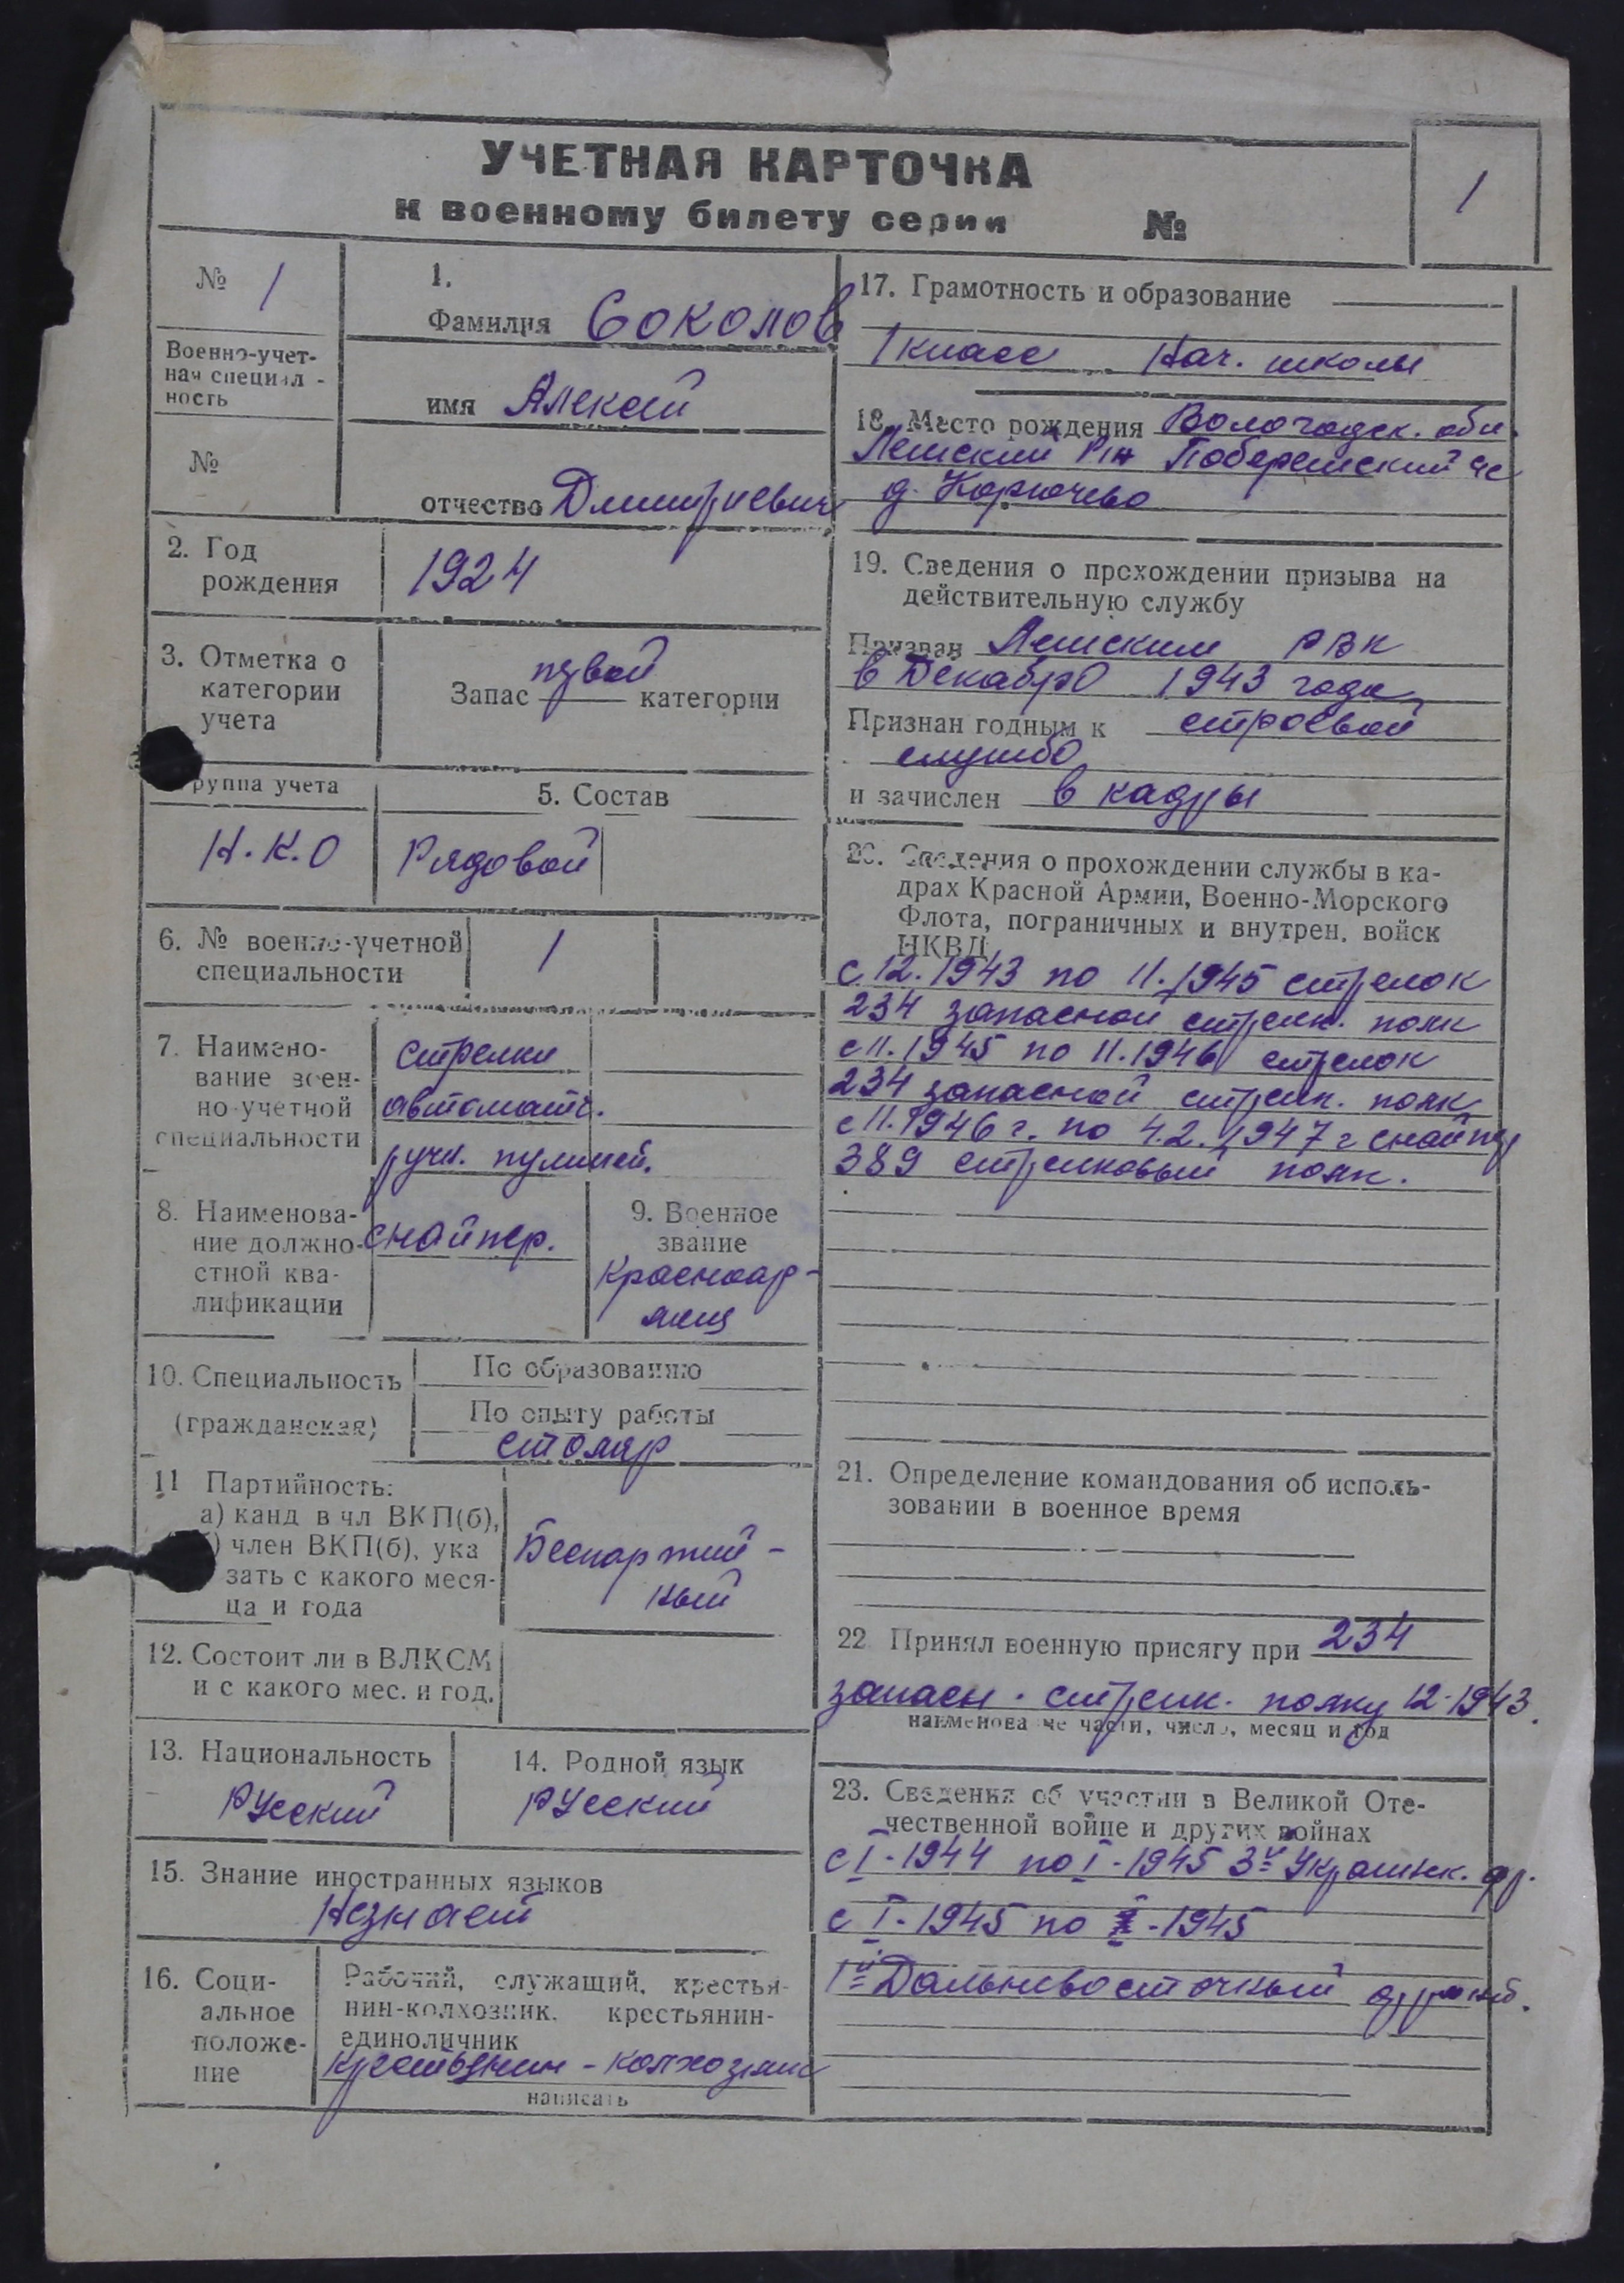 УЧЕТНАЯ КАРТОЧКА
к военному билету серии №
1
№ 1
Военно-учет-
ная специал -
ность
№
1.
Фамилия Соколов
имя Алексей
отчество Дмитриевич
2. Год
рождения
1924
3. Отметка о
категории
учета
Запас первой категории
руппа учета
Н.К.О
5. Состав
Рядовой
6. № военно-учетной
специальности
1
7. Наимено-
вание воен-
но-учетной
специальности
стрелки
автоматч.
ручн. пулиней.
8. Наименова-
ние должно-
стной ква-
лификации
снайпер.
9. Военное
звание
Красноар-
меец
10. Специальность
(гражданская)
По образованию
По опыту работы
столяр
11 Партийность:
а) канд в чл ВКП(б),
) член ВКП(б), ука
зать с какого меся-
ца и года
Беспартий-
ный
12. Состоит ли в ВЛКСМ
и с какого мес. и год.
13. Национальность
Русский
14. Родной язык
Русский
15. Знание иностранных языков
Незнает
16. Соци-
альное
положе-
ние
Рабочий, служащий, крестья-
нин-колхозник, крестьянин-
единоличник
крестьянин-колхозник
написать
17. Грамотность и образование
1 класс Нач. школы
18. Место рождения Вологодск. обл.
Лешский Р/н
д. Корючево
19. Сведения о прохождении призыва на
действительную службу
Призван Лешским РВК
в Декабре 1943 года
Признан годным к строевой
службе
и зачислен в кадры
20. Сведения о прохождении службы в ка-
драх Красной Армии, Военно-Морского
Флота, пограничных и внутрен. войск
НКВД
с 12.1943 по 11.1945 стрелок
234 запасной стрелк. полк
с 11.1945 по 11.1946 стрелок
234 запасной стрелк. полк
с 11.1946 г. по 4.2.1947 г снайпер
389 стрелковый полк.
21. Определение командования об исполь-
зовании в военное время
22 Принял военную присягу при 234
запасн. стрелк. полку 12.1943.
наименование части, число, месяц и год
23. Сведения об участии в Великой Оте-
чественной войне и других войнах
с I-1944 по I-1945 3й Украинск. фр.
с I-1945 по -1945
1й Дальневосточный фронт.